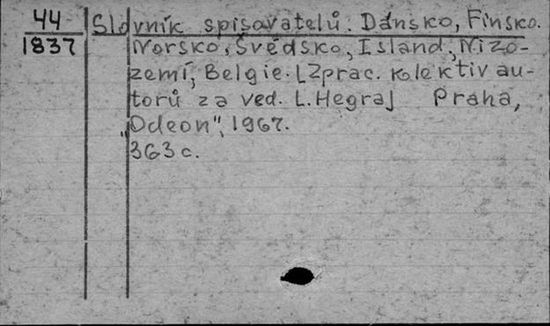 44
1837
Slovník spisovatelů. Dánsko, Finsko.
Norsko, Švédsko, Island, Nizo-
zemí, Belgie. [Zprac. kolektiv au-
torů za ved. L. Hegraj Praha,
„Odeon", 1967.
363 c.